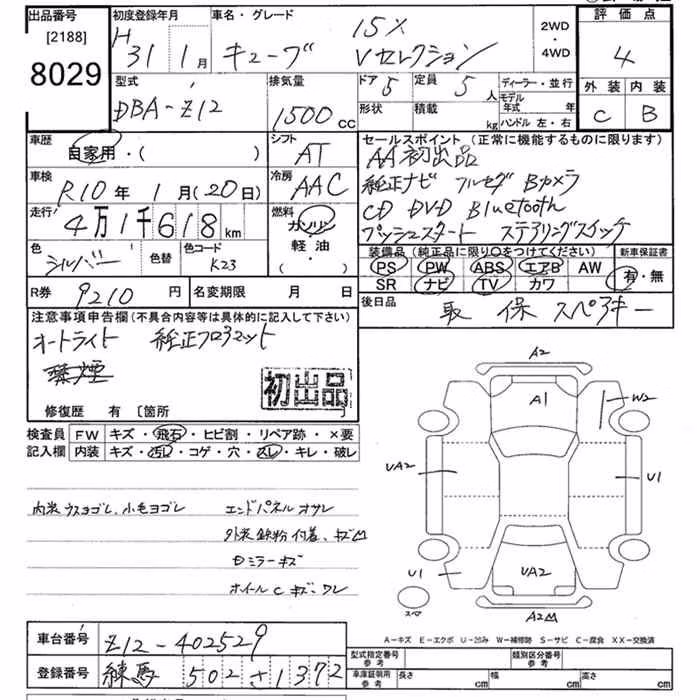 出品番号 [2188] 8029
初度登録年月 H 31年 1月
車名・グレード キューブ 15X Vセレクション
2WD・4WD
評価点 4
外装 C 内装 B
型式 DBA-Z12
排気量 1500 cc
ドア 5 定員 5人
形状 積載 kg
ディーラー・並行
モデル年式 年
ハンドル 左・右
車歴 自家用・( )
シフト AT
車検 R10年 1月(20日)
冷房 AAC
走行 4万1千618 km
燃料 ガソリン 軽油・( )
色 シルバー 色替 色コード K23
セールスポイント(正常に機能するものに限ります)
AA初出品
純正ナビ フルセグ Bカメラ
CD DVD Bluetooth
プッシュスタート ステアリングスイッチ
装備品(純正品に限り○をつけてください)
PS PW ABS エアB AW
SR ナビ TV カワ
新車保証書 有・無
R券 9210円 名変期限 月 日
後日品 取 保 スペアキー
注意事項申告欄(不具合内容等は具体的に記入して下さい)
オートライト 純正フロアマット
禁煙
初出品
修復歴 有 〔箇所
検査員記入欄
FW キズ・飛石・ヒビ割・リペア跡・×要
内装 キズ・汚れ・コゲ・穴・スレ・キレ・破レ
内装ウスヨゴレ、小毛ヨゴレ エンドパネルオサレ
外装鉄粉付着、キズ凹
Dミラーキズ
ホイールCキズ・ワレ
A2
A1
W2
UA2
U1
U1
UA2
スペア
A2凹
A-キズ E-エクボ U-凹み W-補修跡 S-サビ C-腐食 XX-交換済
車台番号 Z12-402529
登録番号 練馬 502 さ 1372
型式指定番号 参考 類別区分番号 参考
車庫証明用 参考 長さ cm 幅 cm 高さ cm